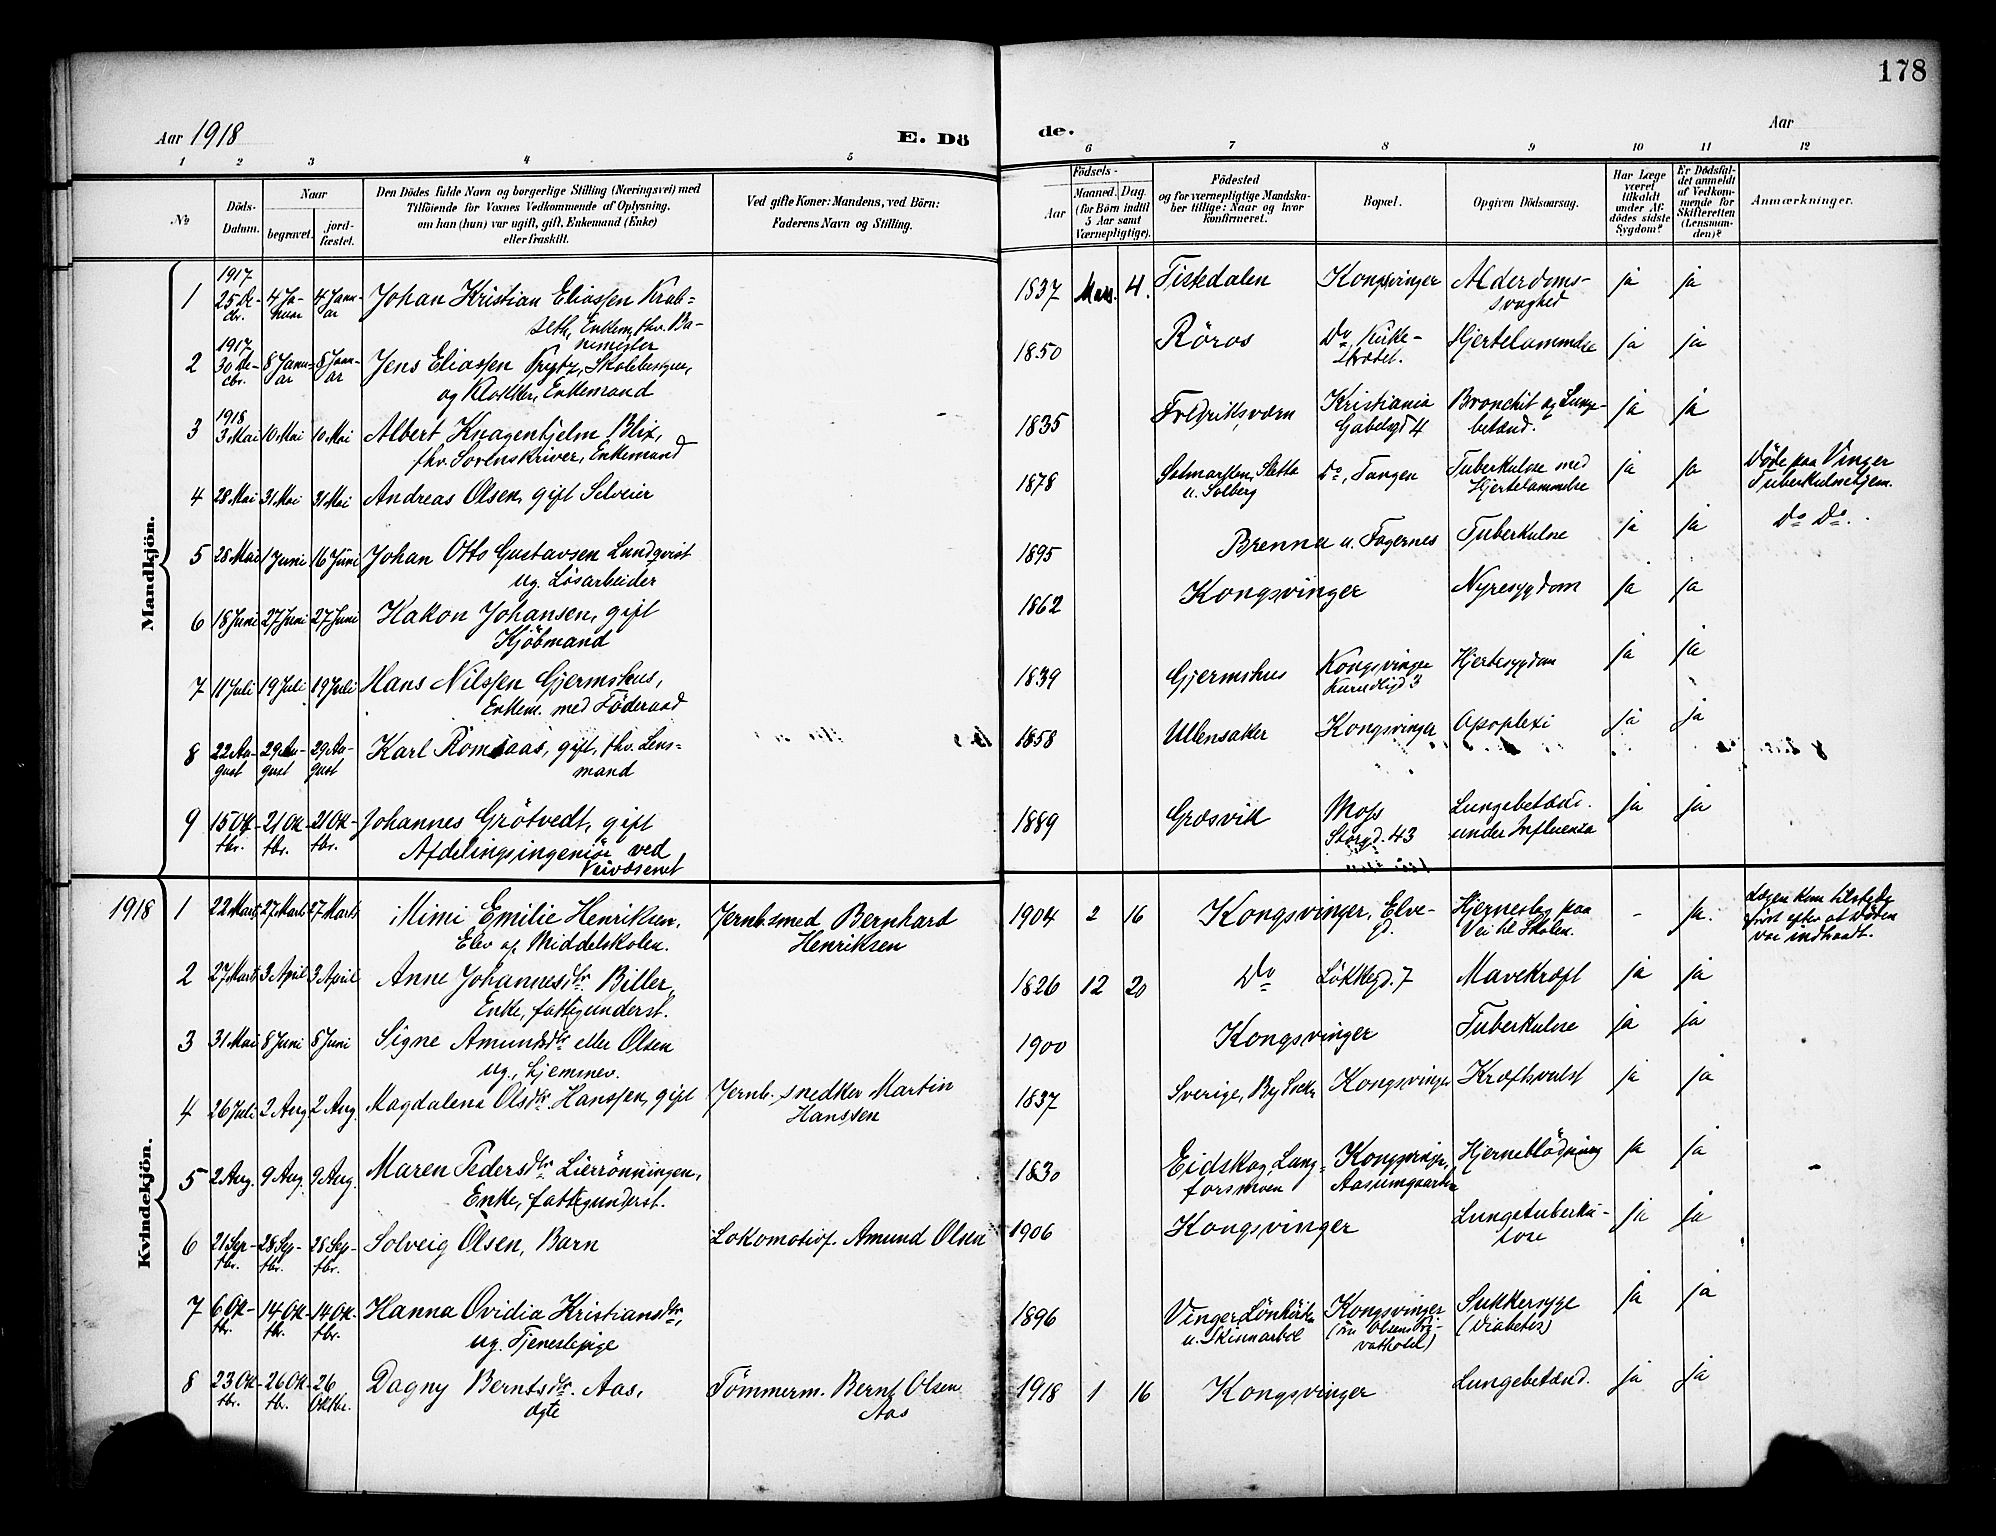 178
Aar 1918
E. Dö
de.
Aar
1 2 3 4 5 6 7 8 9 10 11 12
№
Döds-Datum.
Naar
begravet.
jord-fæstet.
Den Dödes fulde Navn og borgerlige Stilling (Næringsvei) med
Tilföiende for Voxnes Vedkommende af Oplysning,
om han (hun) var ugift, gift, Enkemand (Enke)
eller fraskilt.
Ved gifte Koner: Mandens, ved Börn:
Faderens Navn og Stilling.
Födsels-
Aar
Maaned. Dag.
(for Börn indtil
5 Aar samt
Værnepligtige).
Födested
og for værnepligtige Mandska-
ber tillige: Naar og hvor
konfirmeret.
Bopæl.
Opgiven Dödsaarsag.
Har Læge
været
tilkaldt
under Af-
dödes sidste
Sygdom?
Er Dödsfal-
det anmeldt
af Vedkom-
mende for
Skifteretten
(Lensman-
den)?
Anmærkninger.
Mandkjön.
1 1917 25 De-cbr. 4 Ja-nuar 4 Janu-ar Johan Kristian Eliassen Krab-
seth, Enkem, fhv. Ba-
nemester
1837 Mars. 4. Fiskdalen Kongsvinger Alderdoms-
svaghed ja ja
2 1917 30 De-cbr. 8 Janu-ar 8 Janu-ar Jens Eliassen Prytz, Skolebestyrer,
og Klokker, Enkemand
1850 Röros Do, Kirke-
strædet. Hjertelammelse ja ja
3 1918 3 Mai 10 Mai 10 Mai Albert Knagenhjelm Blix,
fhv. Sorenskriver, Enkemand
1835 Fredriksværn Kristiania
Gabelsgd 4 Bronchit og Lunge-
betænd. ja ja
4 28 Mai 31 Mai 31 Mai Andreas Olsen, gift Selveier
1878 Slette
u. Solberg Do, Tangen Tuberkulose med
Hjertelammelse ja ja Döde paa Vinger
Tuberkulosehjem.
5 28 Mai 1 Juni 16 Juni Johan Otto Gustavsen Lundqvist
ug. Løsarbeider
1895 Brenna u. Fagernes Tuberkulose ja ja Do Do.
6 18 Juni 27 Juni 27 Juni Hakon Johansen, gift
Kjöbmand
1862 Kongsvinger Nyresygdom ja ja
7 11 Juli 19 Juli 19 Juli Hans Nilssen Gjermshus,
Enkem. med Föderaad
1839 Gjermshus Kongsvinger
3 Hjertesygdom ja ja
8 22 Au-gust 29 Au-gust 29 Au-gust Karl Romsaas, gift, fhv. Lens-
mand
1858 Ullensaker Kongsvinger Apoplexi ja ja
9 15 Ok-tbr. 21 Ok-tbr. 21 Ok-tbr. Johannes Grötvedt, gift
Afdelingsingeniør ved
Veivæsenet
1889 Græsvik Moss
Storgd. 43 Lungebetænd.
under Influenza ja ja
Kvindekjön.
1918 1 22 Marts 27 Marts 27 Marts Mimi Emilie Henriksen,
Elev af Middelskolen.
Jernb.smed Bernhard
Henriksen
1904 2 16 Kongsvinger, Elve-
gd. Hjerneslag paa
Vei til Skolen. - ja. Lægen kom tilstede
først efter at Döden
var indtraadt.
2 27 Marts 3 April 3 April Anne Johannesdtr. Biller,
Enke, fattigunderst.
1826 12 20 Do Løkkegd. 7 Mavekræft ja ja
3 31 Mai 8 Juni 8 Juni Signe Amundsdtr eller Olsen
ug., hjemmev.
1900 Kongsvinger Tuberkulose ja ja
4 26 Juli 2 Aug 2 Aug. Magdalena Olsdtr Hanssen, gift
Jernb. snedker Martin
Hanssen
1837 Sverige, By Sockn Kongsvinger Kræftsvulst ja ja
5 2 Aug. 9 Aug. 9 Aug. Maren Pedersdtr Lierrönningen,
Enke, fattigunderst.
1830 Eidskog, Lang-
forsmoen Kongsvinger,
Aasumgaarden Hjerneblödning ja ja
6 21 Sep-tbr. 28 Sep-tbr. 28 Sep-tbr. Solveig Olsen, Barn
Lokomotivf. Amund Olsen
1906 Kongsvinger Lungetuberku-
lose ja ja
7 6 Ok-tbr. 14 Ok-tbr. 14 Ok-tbr. Hanna Ovidia Kristiansdtr,
ug. Tjenestepige
1896 Vinger
u. Skinnarböl Kongsvinger
(in Olsens Pri-
vathotel) Sukkersyge
(Diabetes) ja ja
8 23 Ok-tbr. 26 Ok-tbr. 26 Oktbr. Dagny Berntsdtr. Aas,
ægte
Tömmerm. Bernt Olsen
Aas
1918 1 16 Kongsvinger Lungebetænd. ja ja